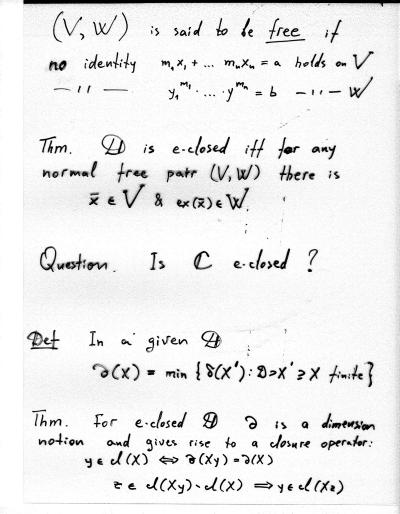 (V, W) is said to be free if
no identity m₁x₁ + ... mₙxₙ = a holds on V
—11— y₁^m₁ · ... · y^mₙ = b —11— W
Thm. 𝔻 is e-closed iff for any
normal free pair (V, W) there is
x̄ ∈ V & ex(x̄) ∈ W.
Question. Is ℂ e-closed ?
Def In a given 𝔻
∂(X) = min {δ(X') : 𝔻 > X' ⊇ X finite}
Thm. For e-closed 𝔻 ∂ is a dimension
notion and gives rise to a closure operator:
y ∈ cl(X) ⇔ ∂(Xy) = ∂(X)
z ∈ cl(Xy) - cl(X) ⇒ y ∈ cl(Xz)